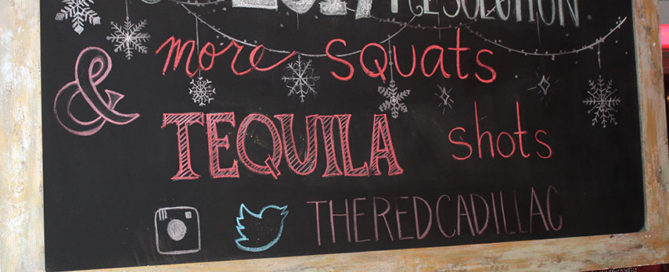 2017 RESOLUTION
more squats
& TEQUILA shots
THEREDCADILLAC